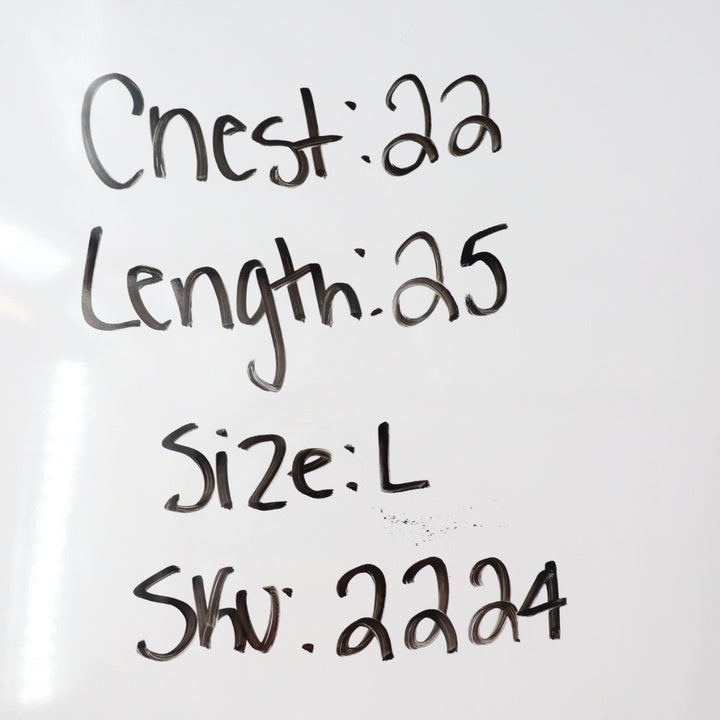 Chest: 22
Length: 25
Size: L
SKU: 2224